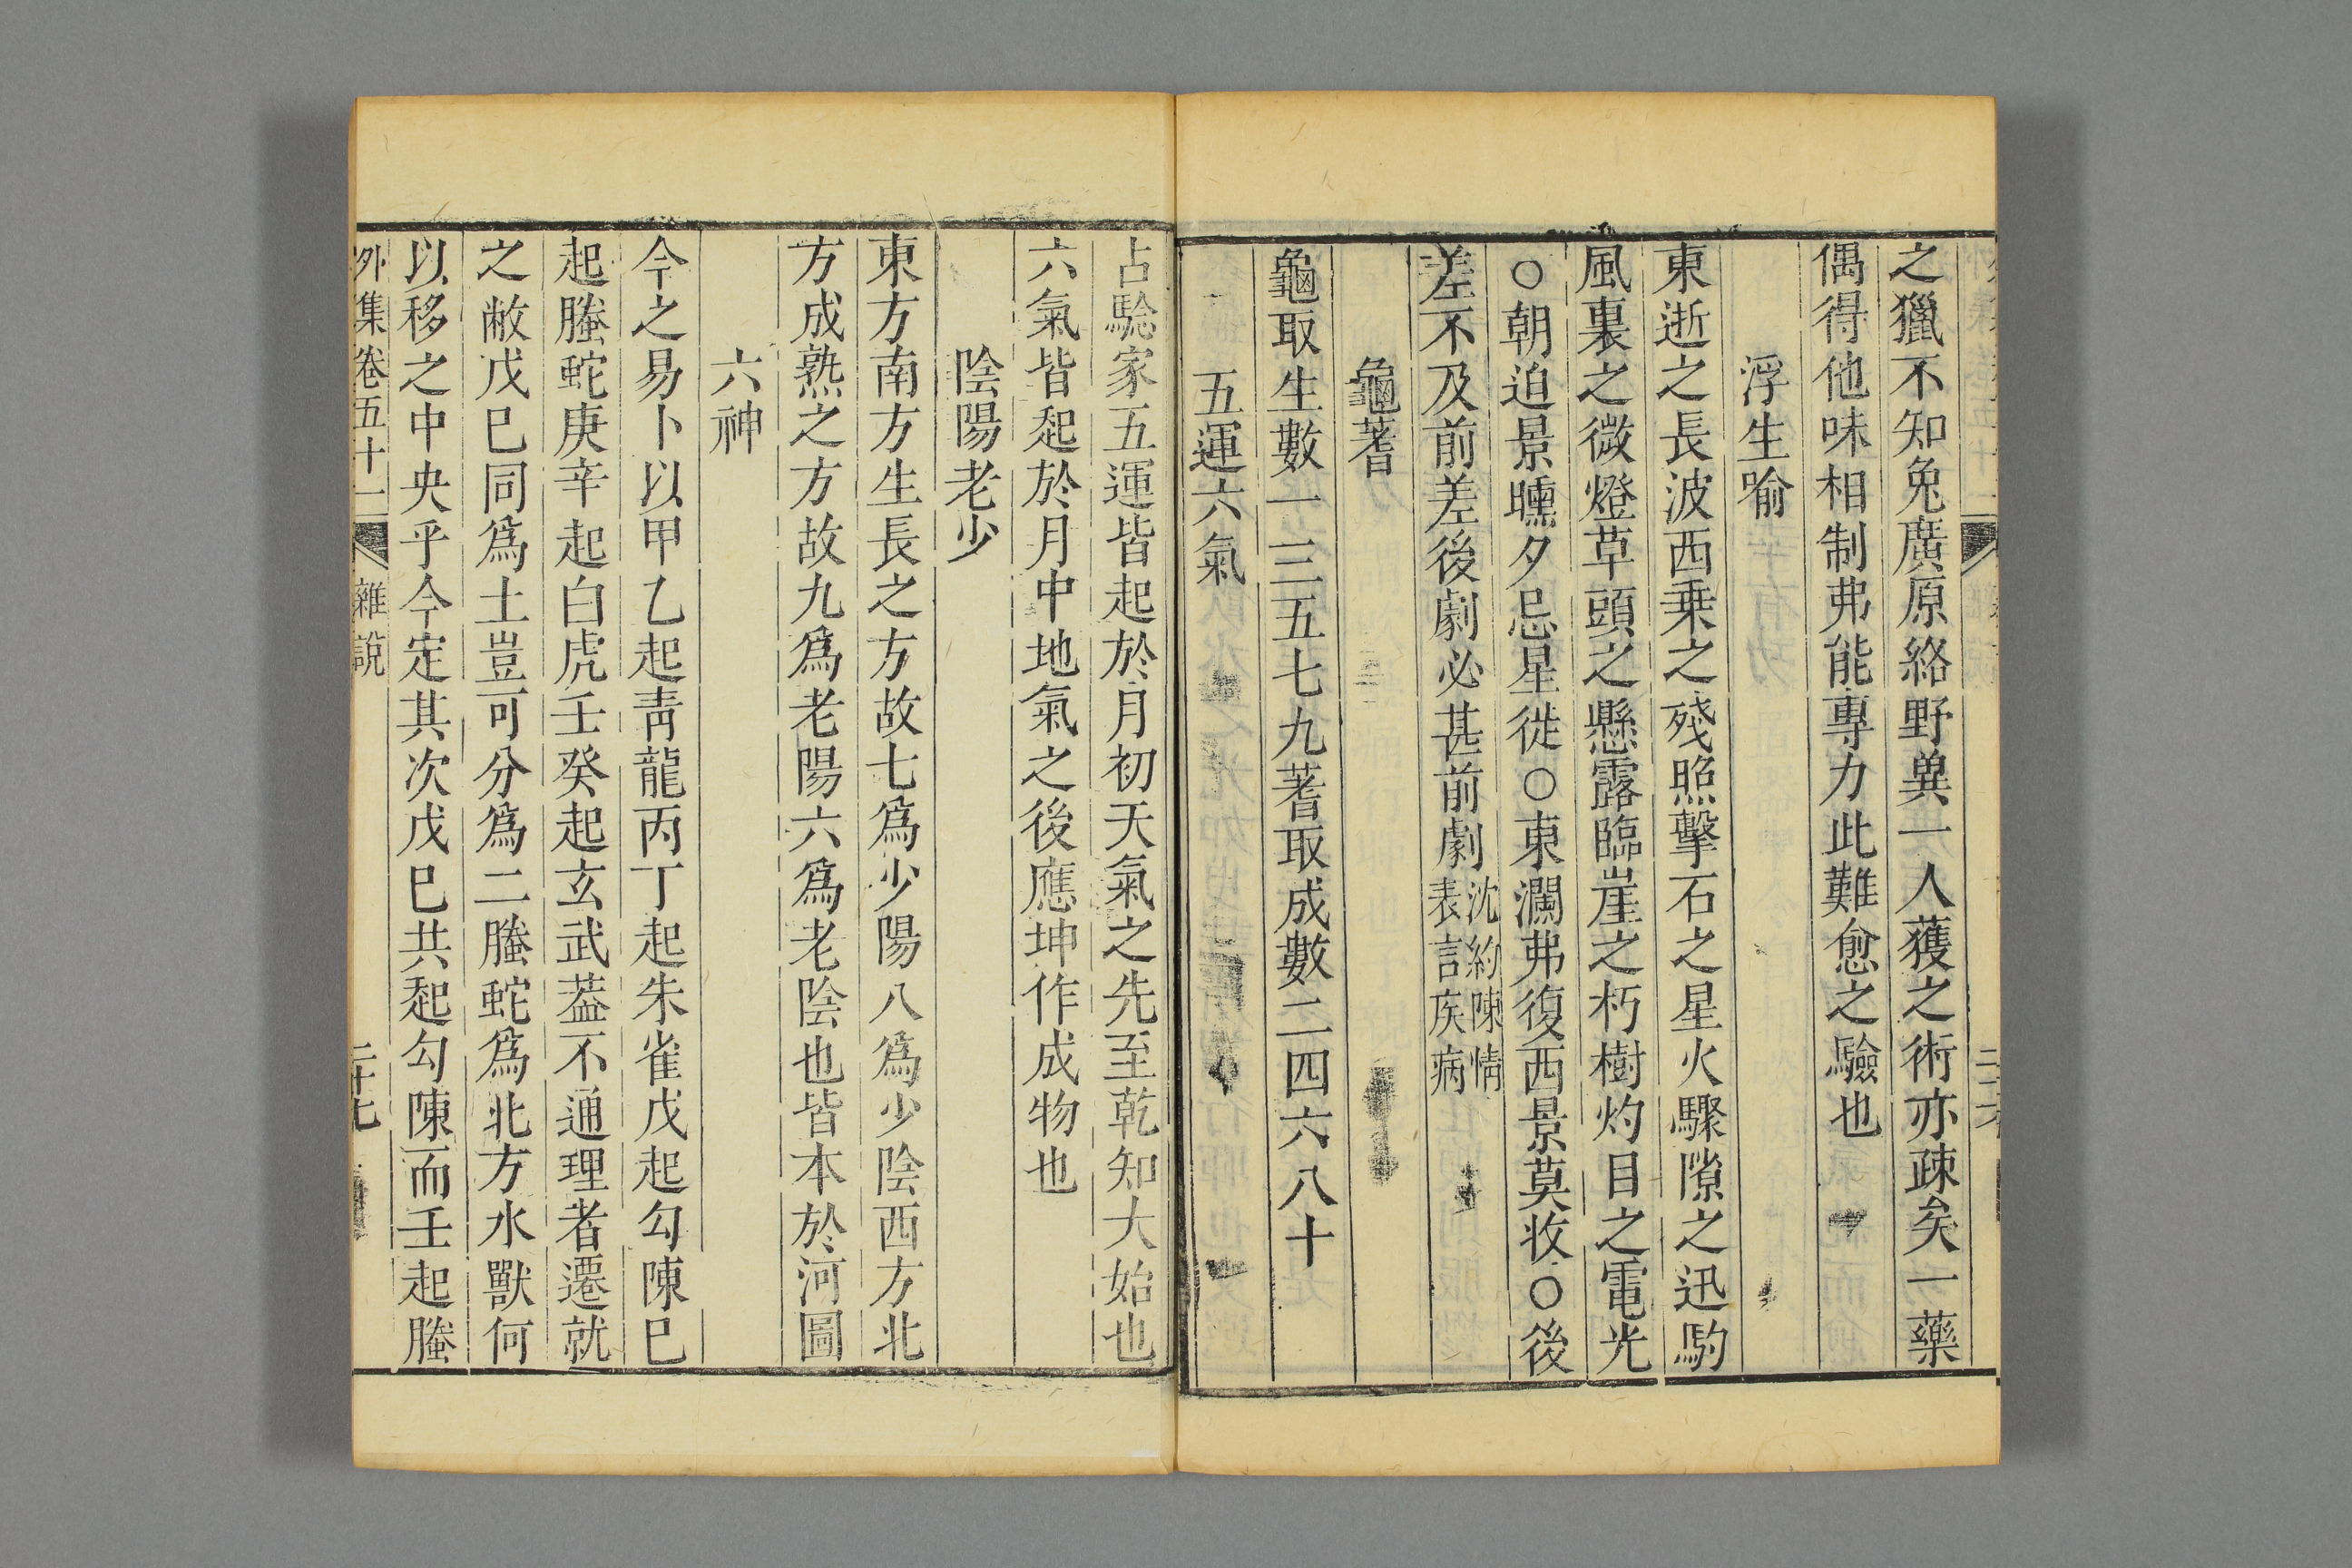 之獵不知兔廣原絡野兾一人獲之術亦疎矣一藥
偶得他味相制弗能專力此難愈之驗也
浮生喻
東逝之長波西乗之殘照擊石之星火驟隙之迅駒
風裏之微燈草頭之懸露臨崖之朽樹灼目之電光
○朝迫景曛夕忌星徙○東瀾弗復西景莫收○後
差不及前差後劇必甚前劇沈約陳情表言疾病
龜蓍
龜取生數一三五七九蓍取成數二四六八十
五運六氣
占驗家五運皆起於月初天氣之先至乾知大始也
六氣皆起於月中地氣之後應坤作成物也
陰陽老少
東方南方生長之方故七爲少陽八爲少陰西方北
方成熟之方故九爲老陽六爲老陰也皆本於河圖
六神
今之易卜以甲乙起青龍丙丁起朱雀戊起勾陳巳
起螣蛇庚辛起白虎壬癸起玄武葢不通理者遷就
之敝戊巳同爲土豈可分爲二螣蛇爲北方水獸何
以移之中央乎今定其次戊巳共起勾陳而壬起螣
外集卷五十二 雜說 二十七